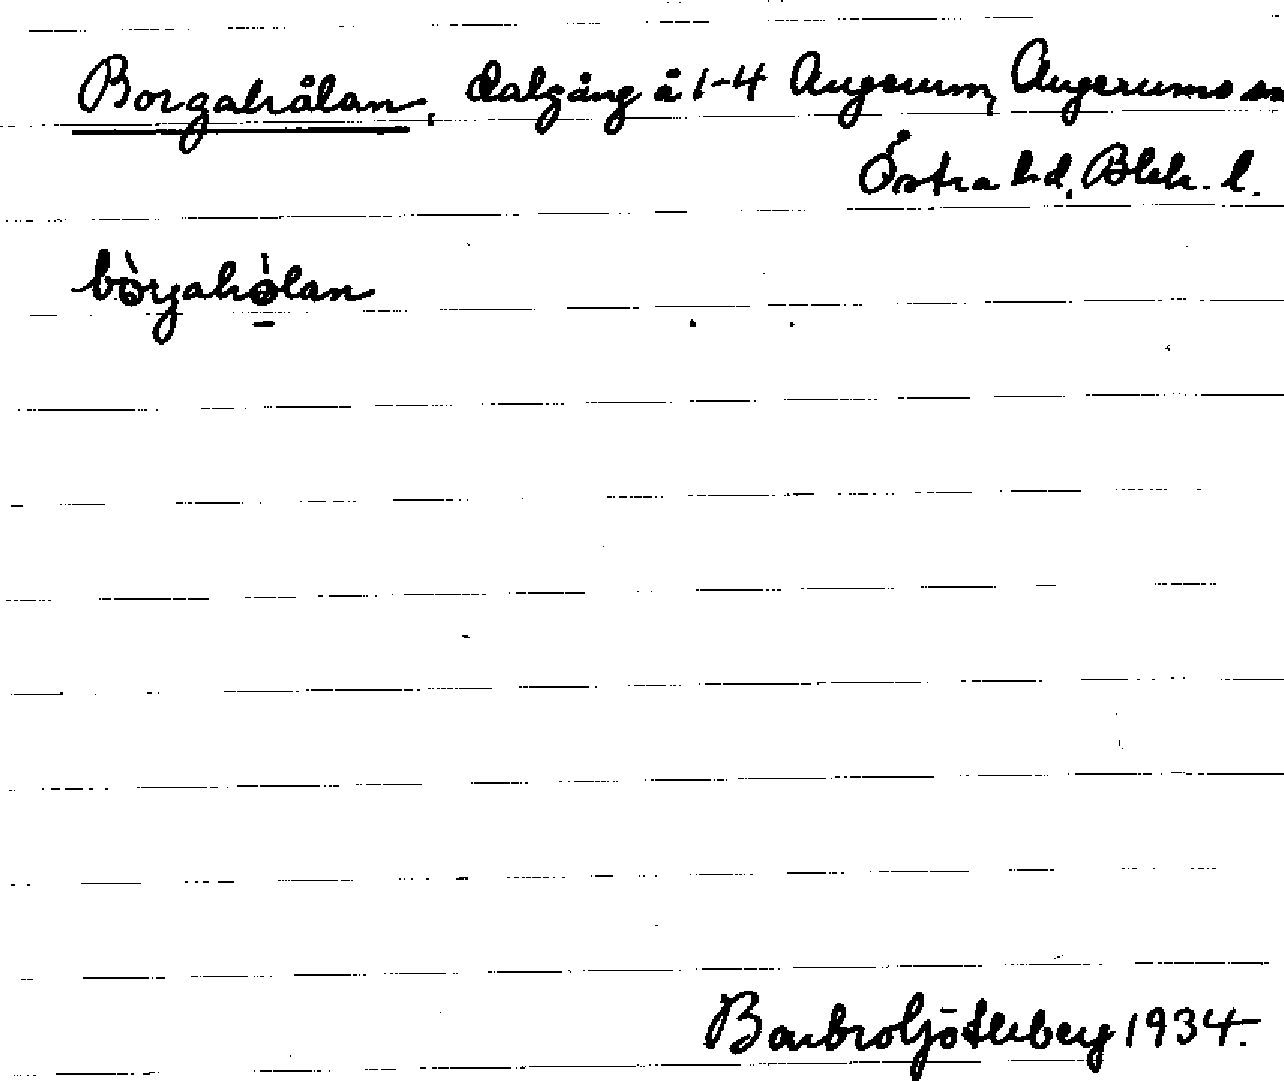 Borgahålan, dalgång å 1-4 Augerum, Augerums sn
Östra hd, Blek. l.
bòrgahòlan
Barbro Götheberg 1934.